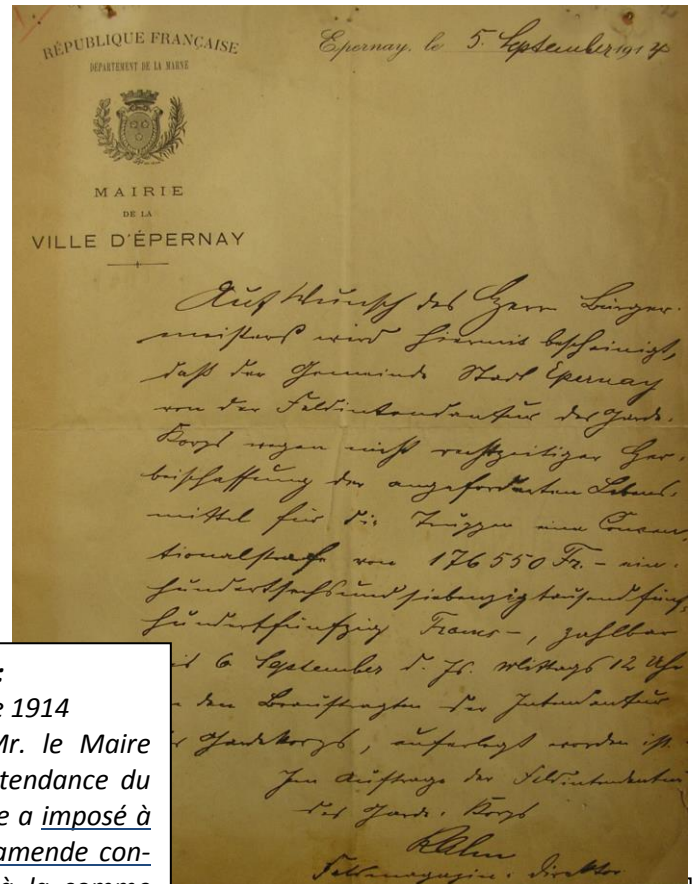 RÉPUBLIQUE FRANÇAISE
DÉPARTEMENT DE LA MARNE
MAIRIE
DE LA
VILLE D'ÉPERNAY
Epernay, le 5. September 1914
Auf Wunsch des Herrn Bürger-
meisters wird hiermit bescheinigt,
daß der Gemeinde Stadt Epernay
von der Feldintendantur des Garde-
Korps wegen nicht rechtzeitiger Her-
beischaffung der angeforderten Lebens-
mittel für die Truppen eine Conven-
tionalstrafe von 176550 Fr. - ein-
hundertsechsundsiebenzigtausend fünf-
hundertfünfzig Francs -, zahlbar
6 September d. Js. Mittags 12 Uhr
den Beauftragten der Intendantur
Gardekorps, auferlegt worden ist.
Im Auftrage der Feldintendantur
des Garde-Korps
Feldmagazin-Direktor
:
e 1914
Mr. le Maire
tendance du
e a imposé à
amende con-
à la somme